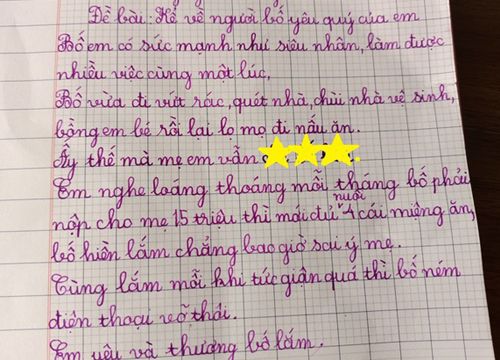 Đề bài: Kể về người bố yêu quý của em
Bố em có sức mạnh như siêu nhân, làm được
nhiều việc cùng một lúc,
Bố vừa đi vứt rác, quét nhà, chùi nhà vệ sinh,
bồng em bé rồi lại lọ mọ đi nấu ăn.
Ấy thế mà mẹ em vẫn
Em nghe loáng thoáng mỗi tháng bố phải
nộp cho mẹ 15 triệu thì mới đủ nuôi 4 cái miệng ăn,
bố hiền lắm chẳng bao giờ sai ý mẹ.
Cùng lắm mỗi khi tức giận quá thì bố ném
điện thoại vỡ thôi.
Em yêu và thương bố lắm.